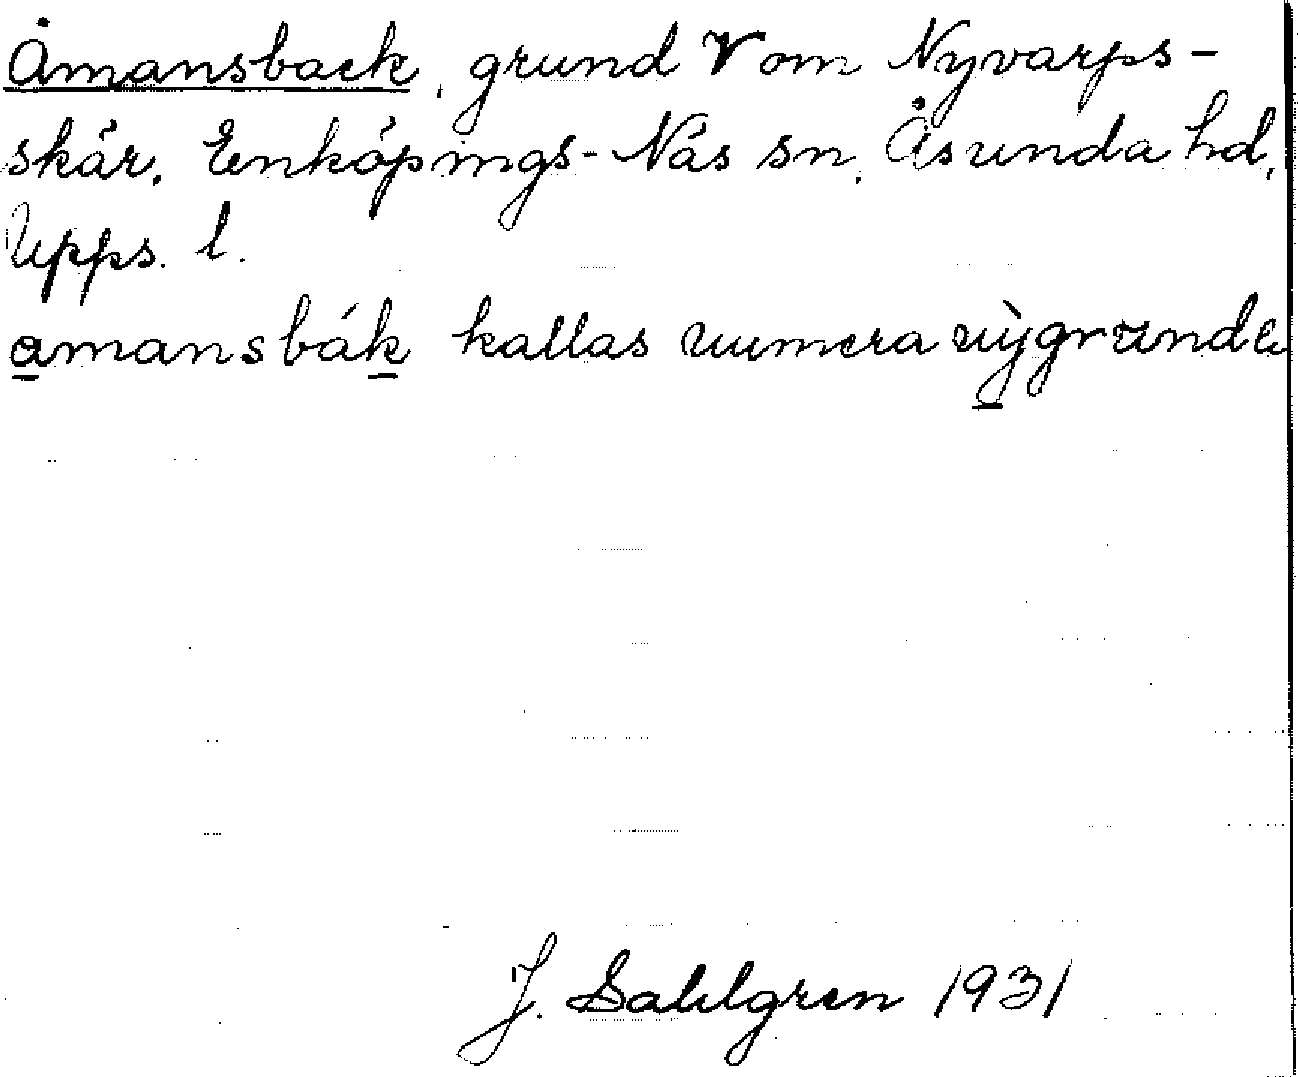 Åmansback, grund V om Nyvarps-
skär, Enköpings-Näs sn, Åsunda hd,
Upps. l.
amansbák kallas numera nỳgrunde
J. Sahlgren 1931